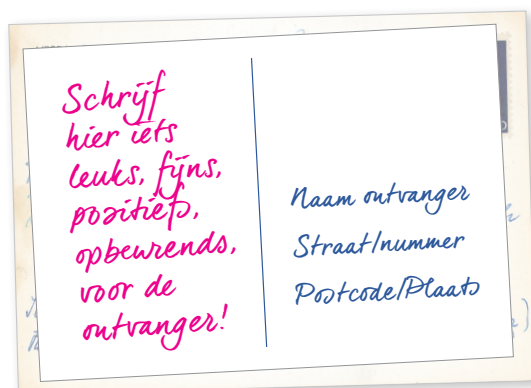 Schrijf
hier iets
leuks, fijns,
positiefs,
opbeurends,
voor de
ontvanger!
Naam ontvanger
Straat/nummer
Postcode/Plaats